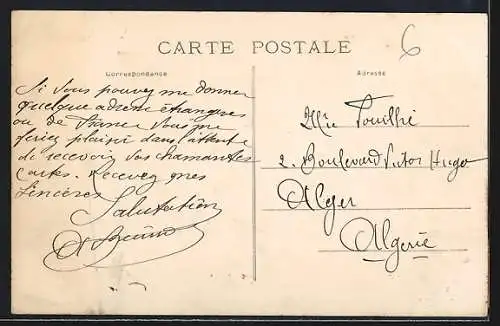 CARTE POSTALE
6
Correspondance
Adresse
Si vous pouvez me donner
quelque adresse étrangères
ou de France vous me
feriez plaisir dans l'attente
de recevoir vos charmantes
Cartes. Recevez mes
Sincères
Salutation
Mlle
2. Boulevard Victor Hugo
Alger
Algerie